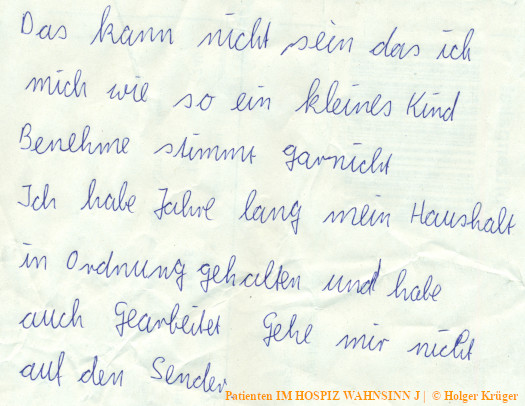 Das kann nicht sein das ich
mich wie so ein kleines Kind
Benehme stimmt garnicht
Ich habe Jahre lang mein Haushalt
in Ordnung gehalten und habe
auch Gearbeitet Gehe mir nicht
auf den Sender
Patienten IM HOSPIZ WAHNSINN J | © Holger Krüger